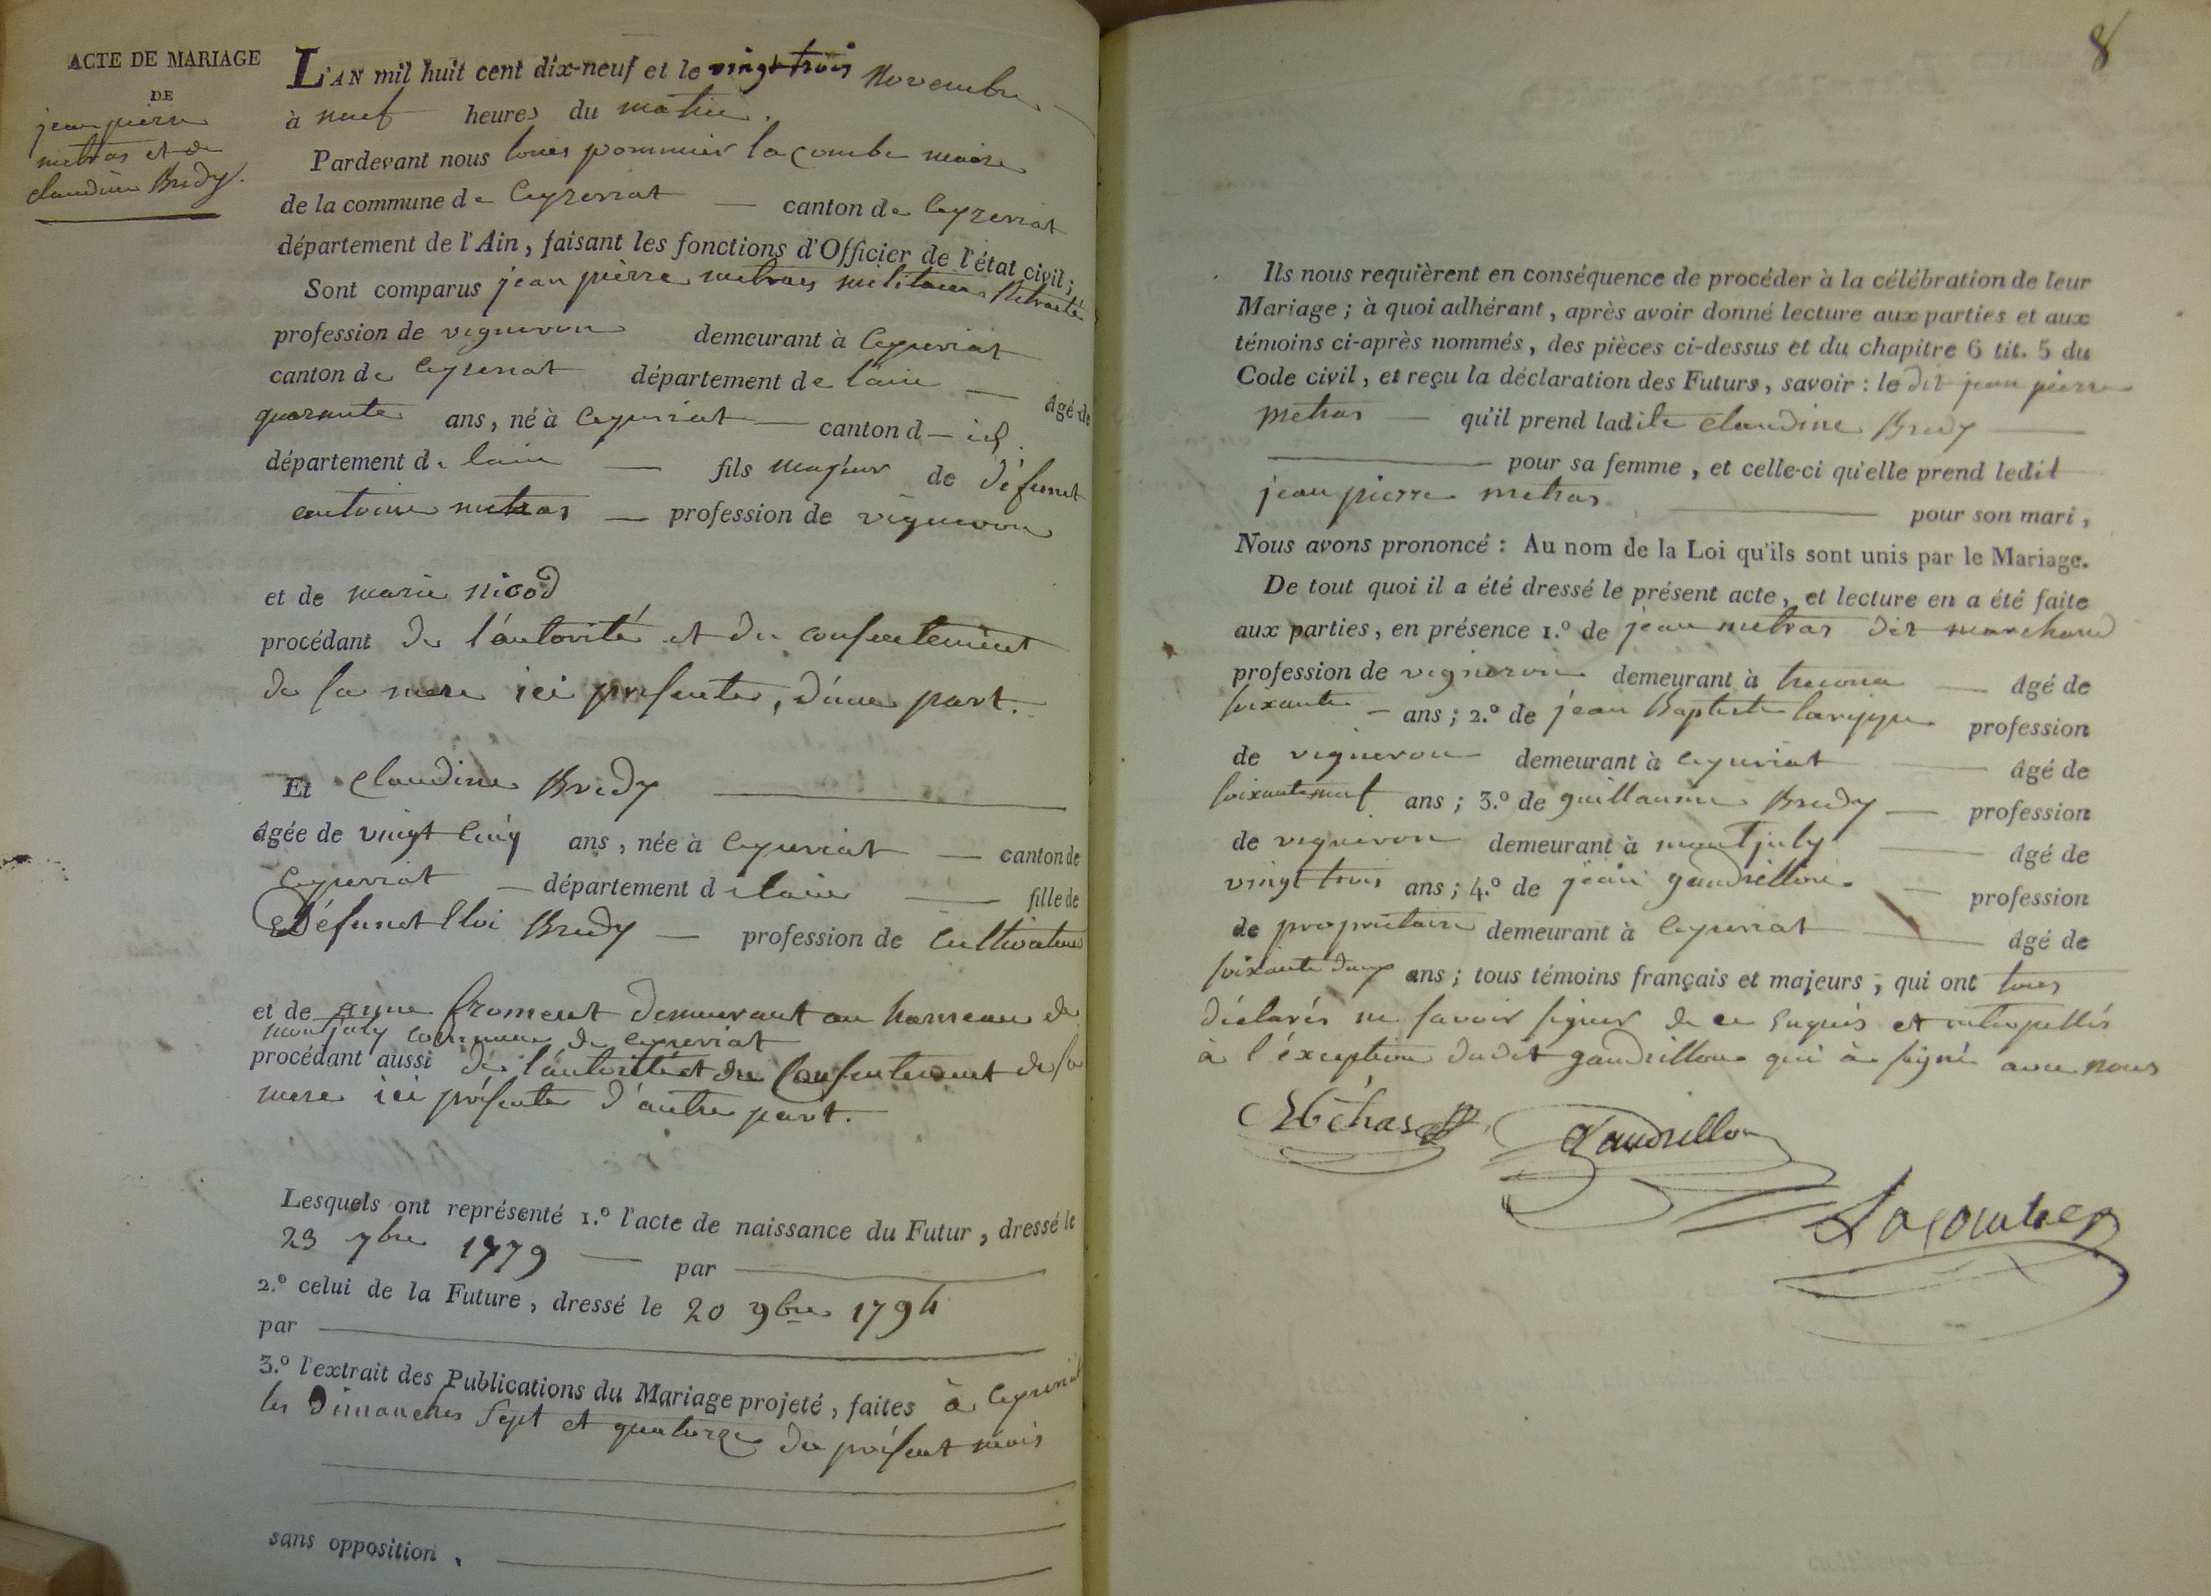 ACTE DE MARIAGE
DE
jean pierre
metras et de
claudine Bredy.
L'AN mil huit cent dix-neuf et le vingt trois Novembre
à neuf heures du matin.
Pardevant nous louis pommier lacombe maire
de la commune de Ceyzeriat canton de Ceyzeriat
département de l'Ain, faisant les fonctions d'Officier de l'état civil;
Sont comparus jean pierre metras militaire Retraité
profession de vigneron demeurant à Ceyzeriat
canton de Ceyzeriat département de lain âgé de
quarante ans, né à Ceyzeriat canton d id.
département de lain fils majeur de défunt
antoine metras profession de vigneron
et de marie nicod
procédant de l'autorité et du consentement
de sa mere ici presente, d'une part.
Et Claudine Bredy
âgée de vingt cinq ans, née à Ceyzeriat canton de
Ceyzeriat département d lain fille de
Défunt Eloi Bredy profession de Cultivateur
et de anne froment demeurant au hameau de
montjuly commune de Ceyzeriat
procédant aussi de l'autorité et du Consentement de sa
mere ici présente d'autre part.
Lesquels ont représenté 1.º l'acte de naissance du Futur, dressé le
23 7bre 1779 par
2.º celui de la Future, dressé le 20 9bre 1794
par
3.º l'extrait des Publications du Mariage projeté, faites à Ceyzeriat
les Dimanches Sept et quatorze du présent mois
sans opposition.
8
Ils nous requièrent en conséquence de procéder à la célébration de leur
Mariage; à quoi adhérant, après avoir donné lecture aux parties et aux
témoins ci-après nommés, des pièces ci-dessus et du chapitre 6 tit. 5 du
Code civil, et reçu la déclaration des Futurs, savoir: le dit jean pierre
metras qu'il prend ladite Claudine Bredy
pour sa femme, et celle-ci qu'elle prend ledit
jean pierre metras pour son mari,
Nous avons prononcé: Au nom de la Loi qu'ils sont unis par le Mariage.
De tout quoi il a été dressé le présent acte, et lecture en a été faite
aux parties, en présence 1.º de jean metras dit marchand
profession de vigneron demeurant à âgé de
soixante ans; 2.º de jean Baptiste profession
de vigneron demeurant à Ceyzeriat âgé de
soixante neuf ans; 3.º de guillaume Bredy profession
de vigneron demeurant à montjuly âgé de
vingt trois ans; 4.º de jean gaudrillon profession
de propriétaire demeurant à Ceyzeriat âgé de
soixante deux ans; tous témoins français et majeurs, qui ont tous
déclarés ne savoir signer de ce enquis et interpellés
à l'éxception dudit gaudrillon qui à signé avec nous
Métras
Gaudrillon
Lacombe